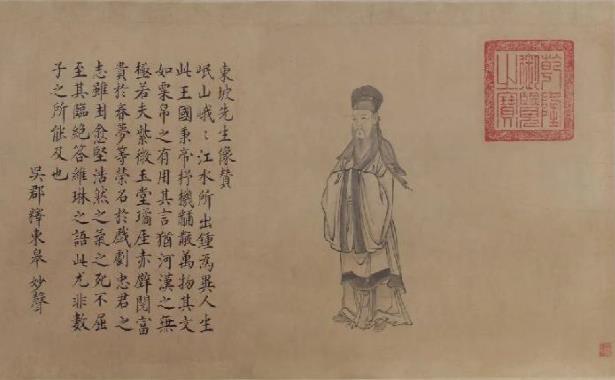 乾隆御覽之寶
東坡先生像贊
岷山峩〻江水所出鍾爲異人生
此王國秉帝杼機黼黻萬物其文
如粟帛之有用其言猶河漢之無
極若夫紫微玉堂瓊崖赤壁閱富
貴於春夢等榮名於戲劇忠君之
志雖困愈堅浩然之氣之死不屈
至其臨絶答維琳之語此尤非數
子之所能及也
吳郡釋東皋妙聲